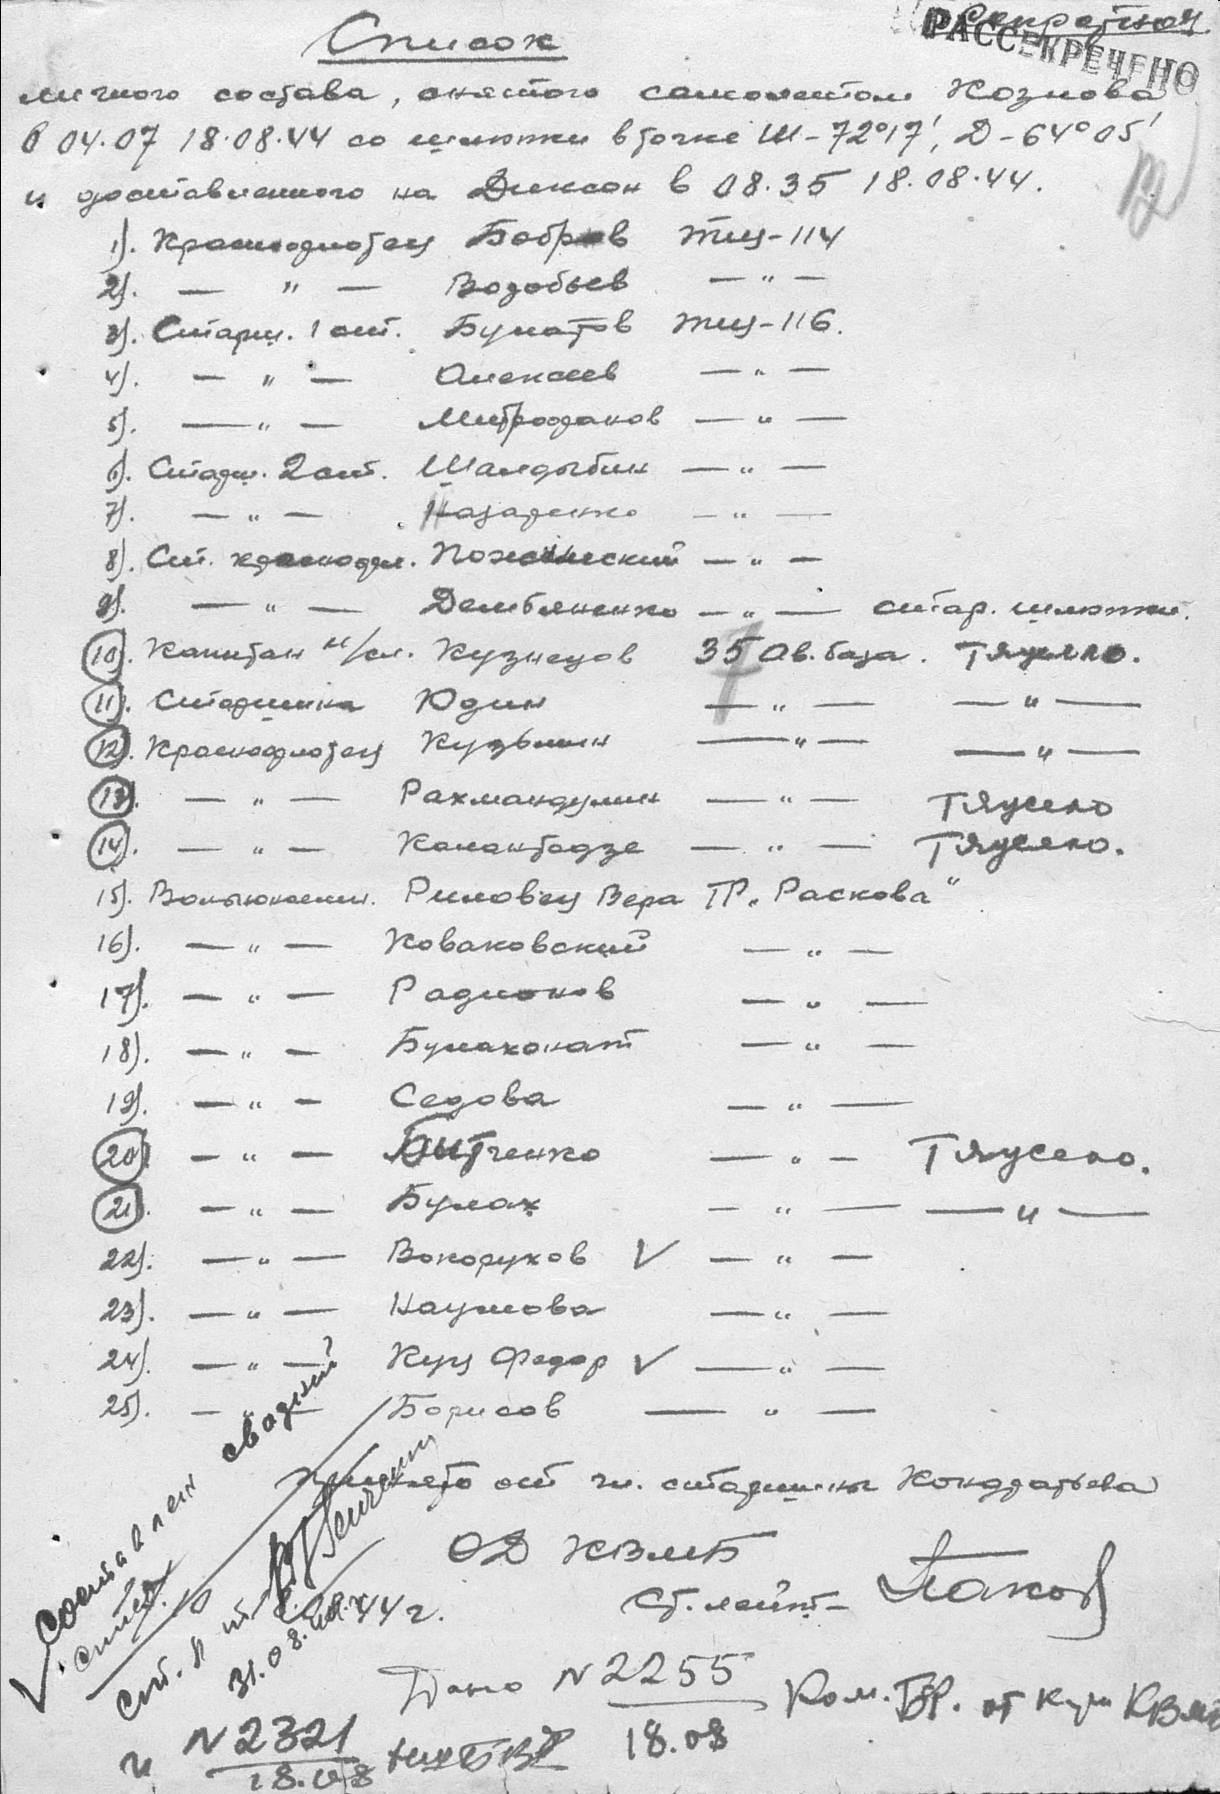 Секретно
РАССЕКРЕЧЕНО
Список
личного состава, снятого самолетом Козлова
в 04.07 18.08.44 со шлюпки в точке Ш-72°17', Д-64°05'
и доставленного на Диксон в 08.35 18.08.44.
1). Краснофлотец Бобров ТЩ-114
2). — " — Воробьев — " —
3). Старш. 1 ст. Булатов ТЩ-116.
4). — " — Алексеев — " —
5). — " — Митрофанов — " —
6). Старш. 2 ст. Шалдыбин — " —
7). — " — Назаренко — " —
8). Ст. краснофл. — " —
9). — " — Дембяненко — " — стар. шлюпки.
10). Капитан Кузнецов 35 Ав. база. Тяжело.
11). Старшина Юдин — " — — " —
12). Краснофлотец Кузьмин — " — — " —
13). — " — Рахмандулин — " — Тяжело
14). — " — Каландадзе — " — Тяжело.
15). Вольнонаемн. Вера ТР. „Раскова"
16). — " — Коваковский — " —
17). — " — Радионов — " —
18). — " — — " —
19). — " — Седова — " —
20). — " — Битченко — " — Тяжело.
21). — " — Булах — " — — " —
22). — " — Вокоруков V — " —
23). — " — Наумова — " —
24). — " — Куц Федор V — " —
25). — " — Борисов — " —
Принято от гл. старшины Кондратьева
ОД КВМБ
Ст. лейт-
Составлен сводный
список
31.08.44 г.
Дано N 2255 Ком. БР. от КВМБ
18.08
и N 2321
18.08